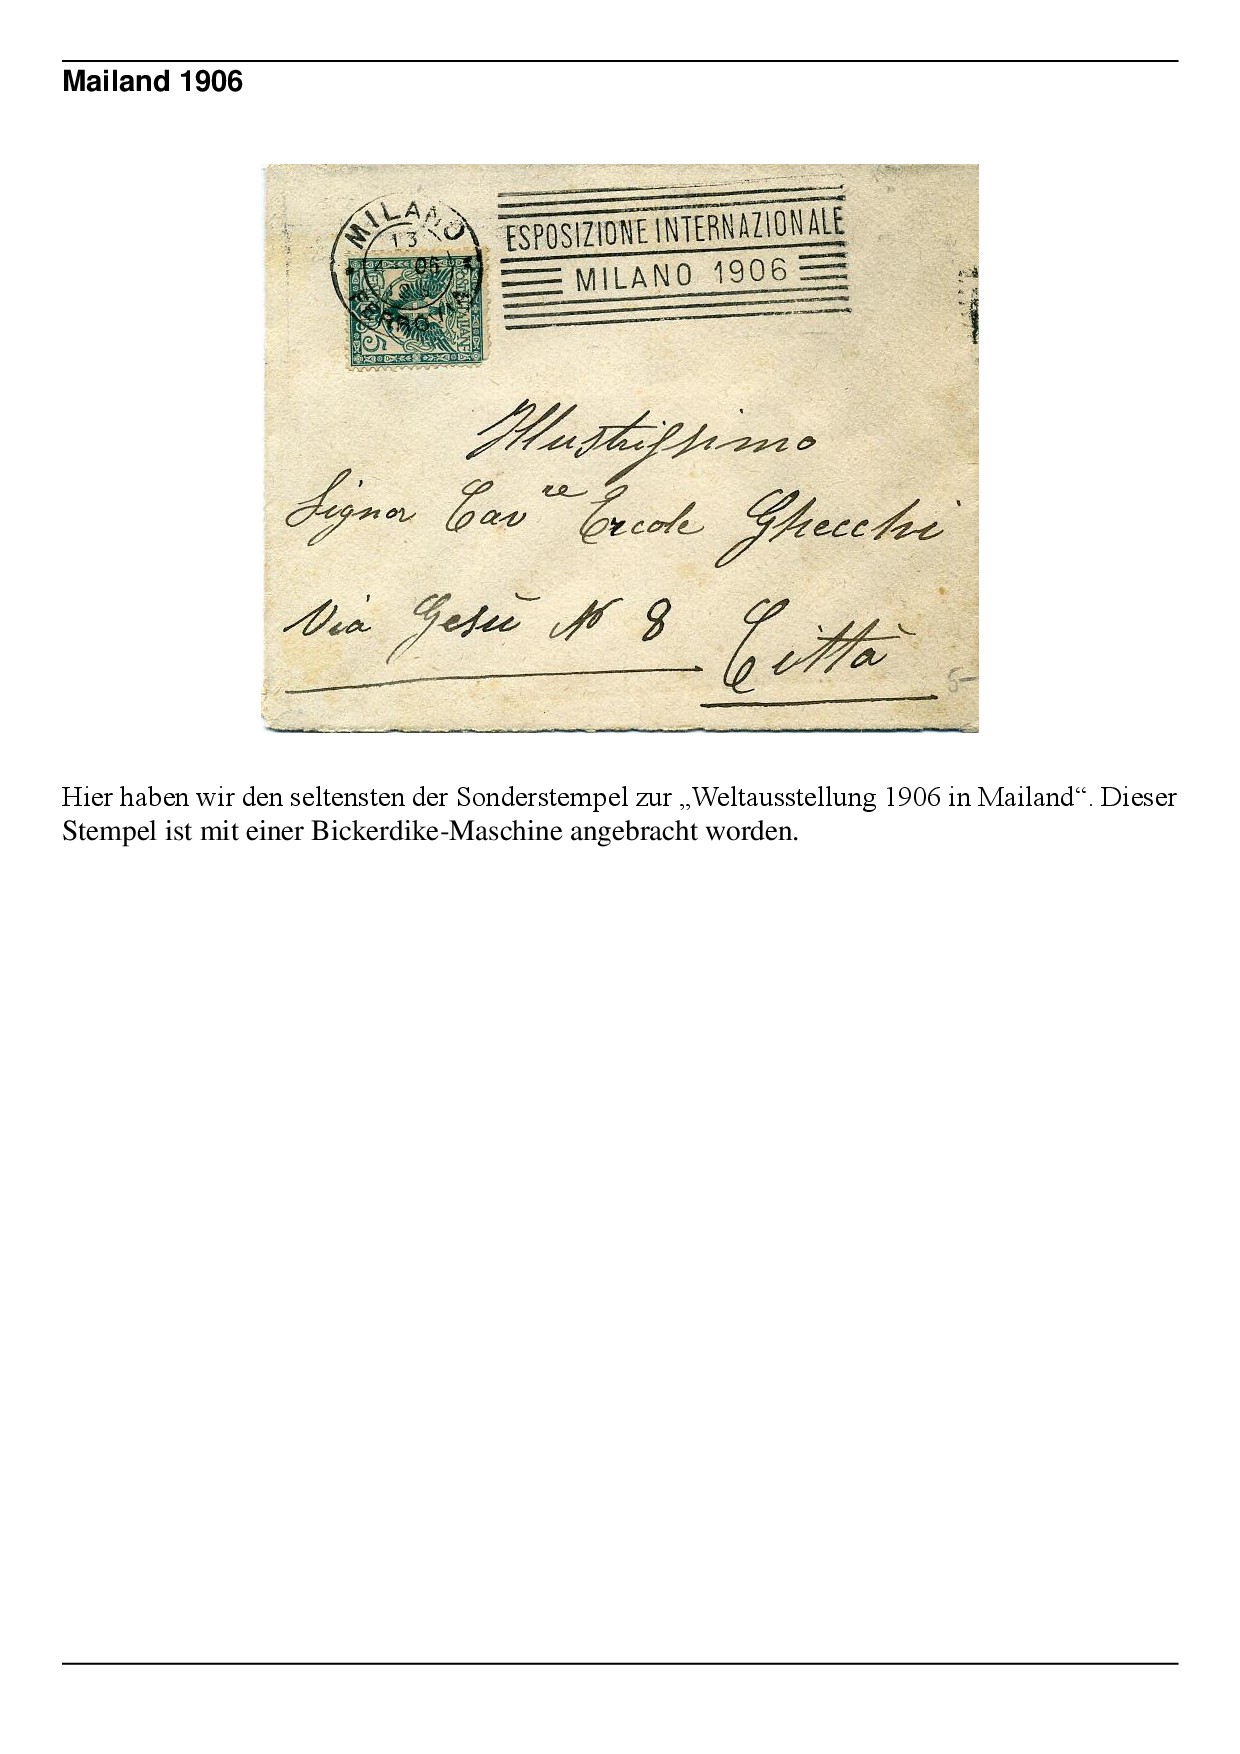 Mailand 1906
MILANO
13
4 06
FERROVIA
ESPOSIZIONE INTERNAZIONALE
MILANO 1906
5
Illustrissimo
Signor Cav re Ercole Ghecchi
Via Gesù N 8 Città
5-
Hier haben wir den seltensten der Sonderstempel zur „Weltausstellung 1906 in Mailand“. Dieser
Stempel ist mit einer Bickerdike-Maschine angebracht worden.